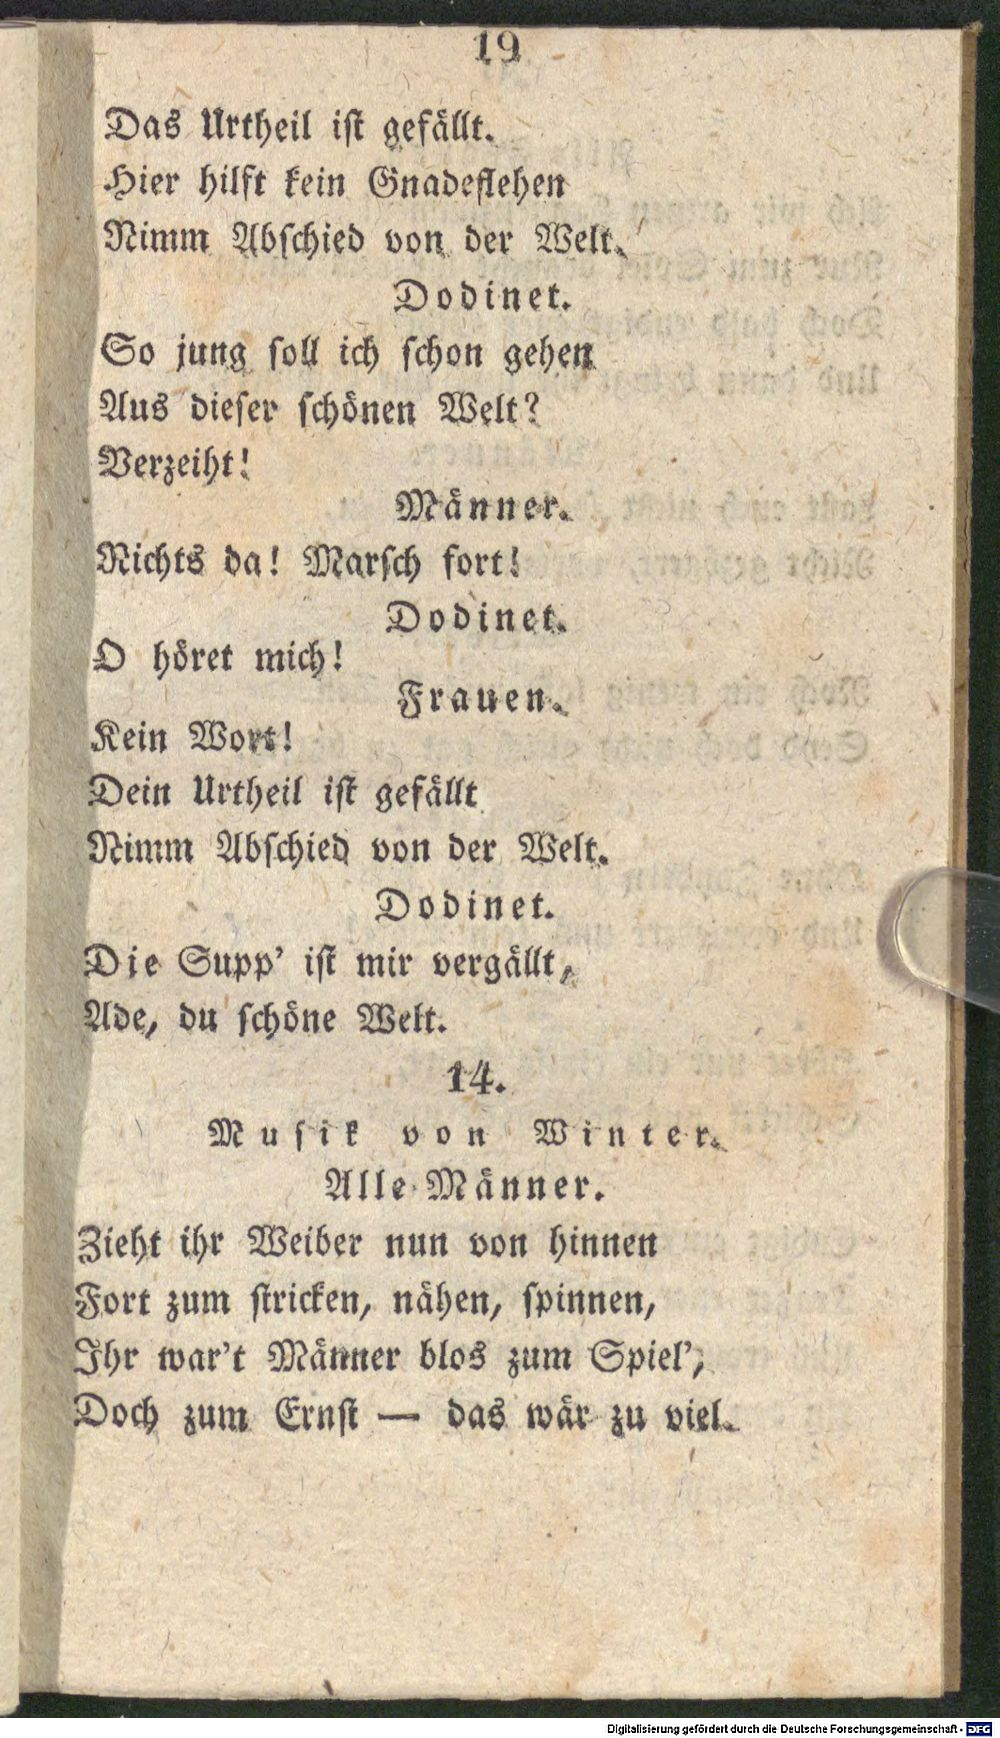 19
Das Urtheil ist gefällt.
Hier hilft kein Gnadeflehen
Nimm Abschied von der Welt.
Dodinet.
So jung soll ich schon gehen
Aus dieser schönen Welt?
Verzeiht!
Männer.
Nichts da! Marsch fort!
Dodinet.
O höret mich!
Frauen.
Kein Wort!
Dein Urtheil ist gefällt
Nimm Abschied von der Welt.
Dodinet.
Die Supp' ist mir vergällt,
Ade, du schöne Welt.
14.
Musik von Winter.
Alle Männer.
Zieht ihr Weiber nun von hinnen
Fort zum stricken, nähen, spinnen,
Ihr war't Männer blos zum Spiel',
Doch zum Ernst — das wär zu viel.
Digitalisierung gefördert durch die Deutsche Forschungsgemeinschaft - DFG